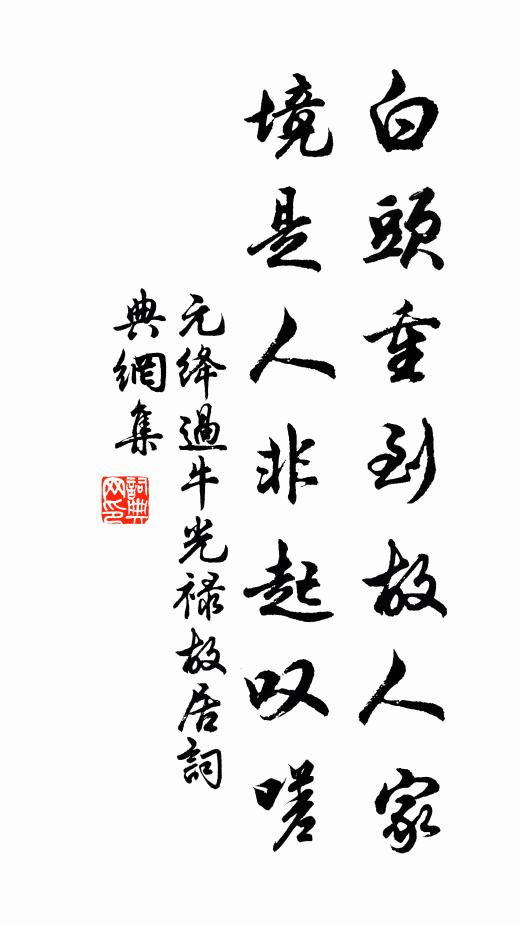 白頭重到故人家
境是人非起叹嗟
元绛過牛光禄故居詞
典網集
詞典网印